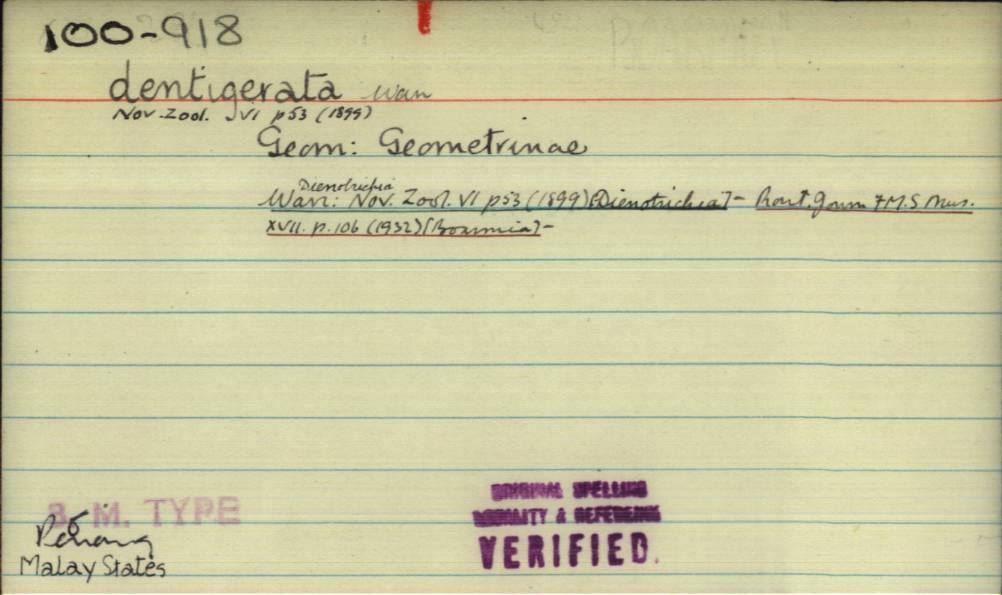 100-918
dentigerata Warr
Nov. Zool. VI p 53 (1899)
Geom: Geometrinae
Dienotrichia
Warr: Nov. Zool. VI p 53 (1899) [Dienotrichia] - Rout. Journ F.M.S Mus.
XVII. p. 106 (1932) [Boarmia] -
B. M. TYPE
♂
Penang
Malay States
ORIGINAL SPELLING
LOCALITY & REFERENCE
VERIFIED.